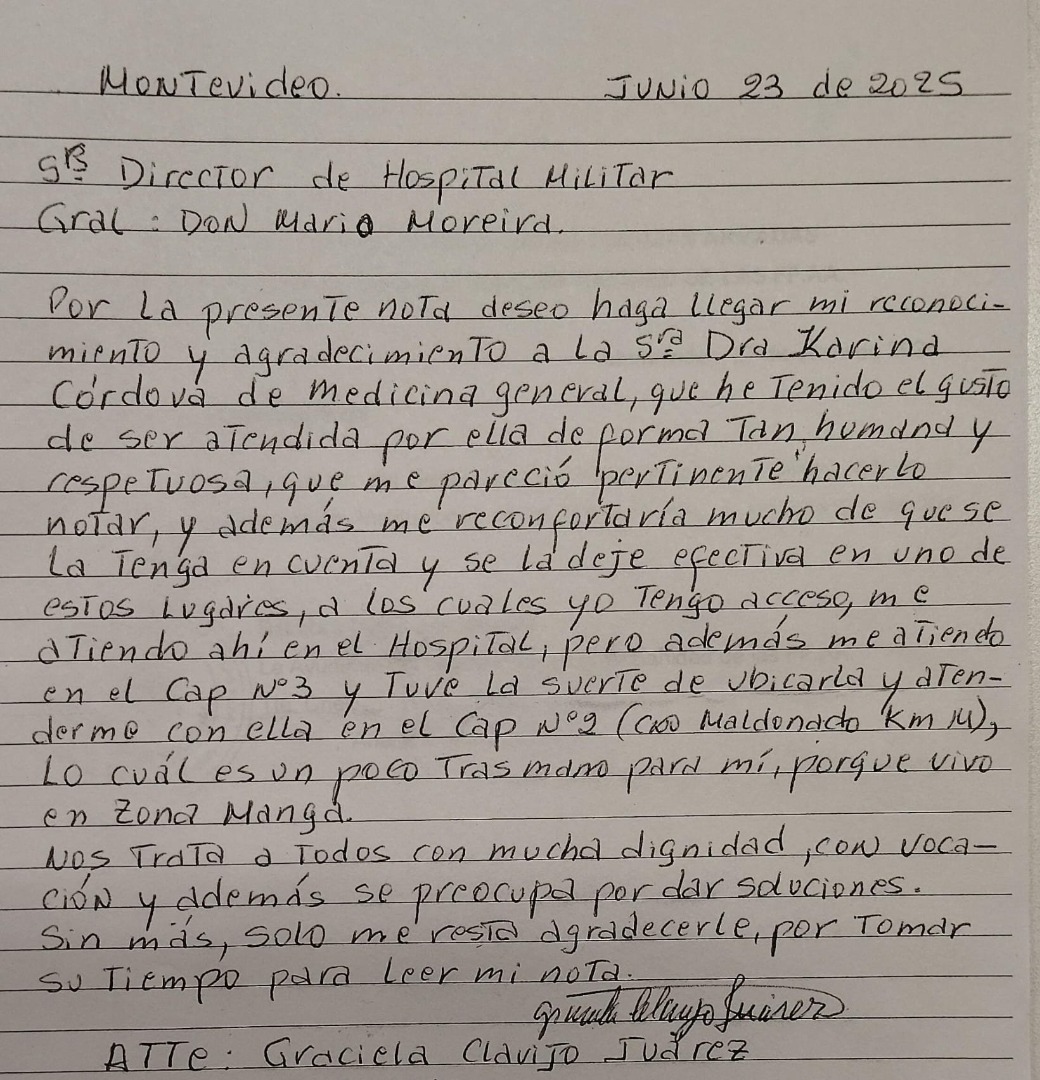 Montevideo. Junio 23 de 2025
Sr Director de Hospital Militar
Gral : Don Mario Moreira.
Por la presente nota deseo haga llegar mi reconoci-
miento y agradecimiento a la Sra Dra Karina
Córdova de medicina general, que he tenido el gusto
de ser atendida por ella de forma tan humana y
respetuosa, que me pareció pertinente hacerlo
notar, y además me reconfortaría mucho de que se
la tenga en cuenta y se la deje efectiva en uno de
estos lugares, a los cuales yo tengo acceso, me
atiendo ahí en el Hospital, pero además me atiendo
en el Cap Nº3 y tuve la suerte de ubicarla y aten-
derme con ella en el Cap Nº2 (Cno Maldonado Km 14),
lo cuál es un poco trasmano para mí, porque vivo
en zona Manga.
Nos trata a todos con mucha dignidad, con voca-
ción y además se preocupa por dar soluciones.
Sin más, solo me resta agradecerle, por tomar
su tiempo para leer mi nota.
Graciela Clavijo Juárez
ATTe: Graciela Clavijo Juárez